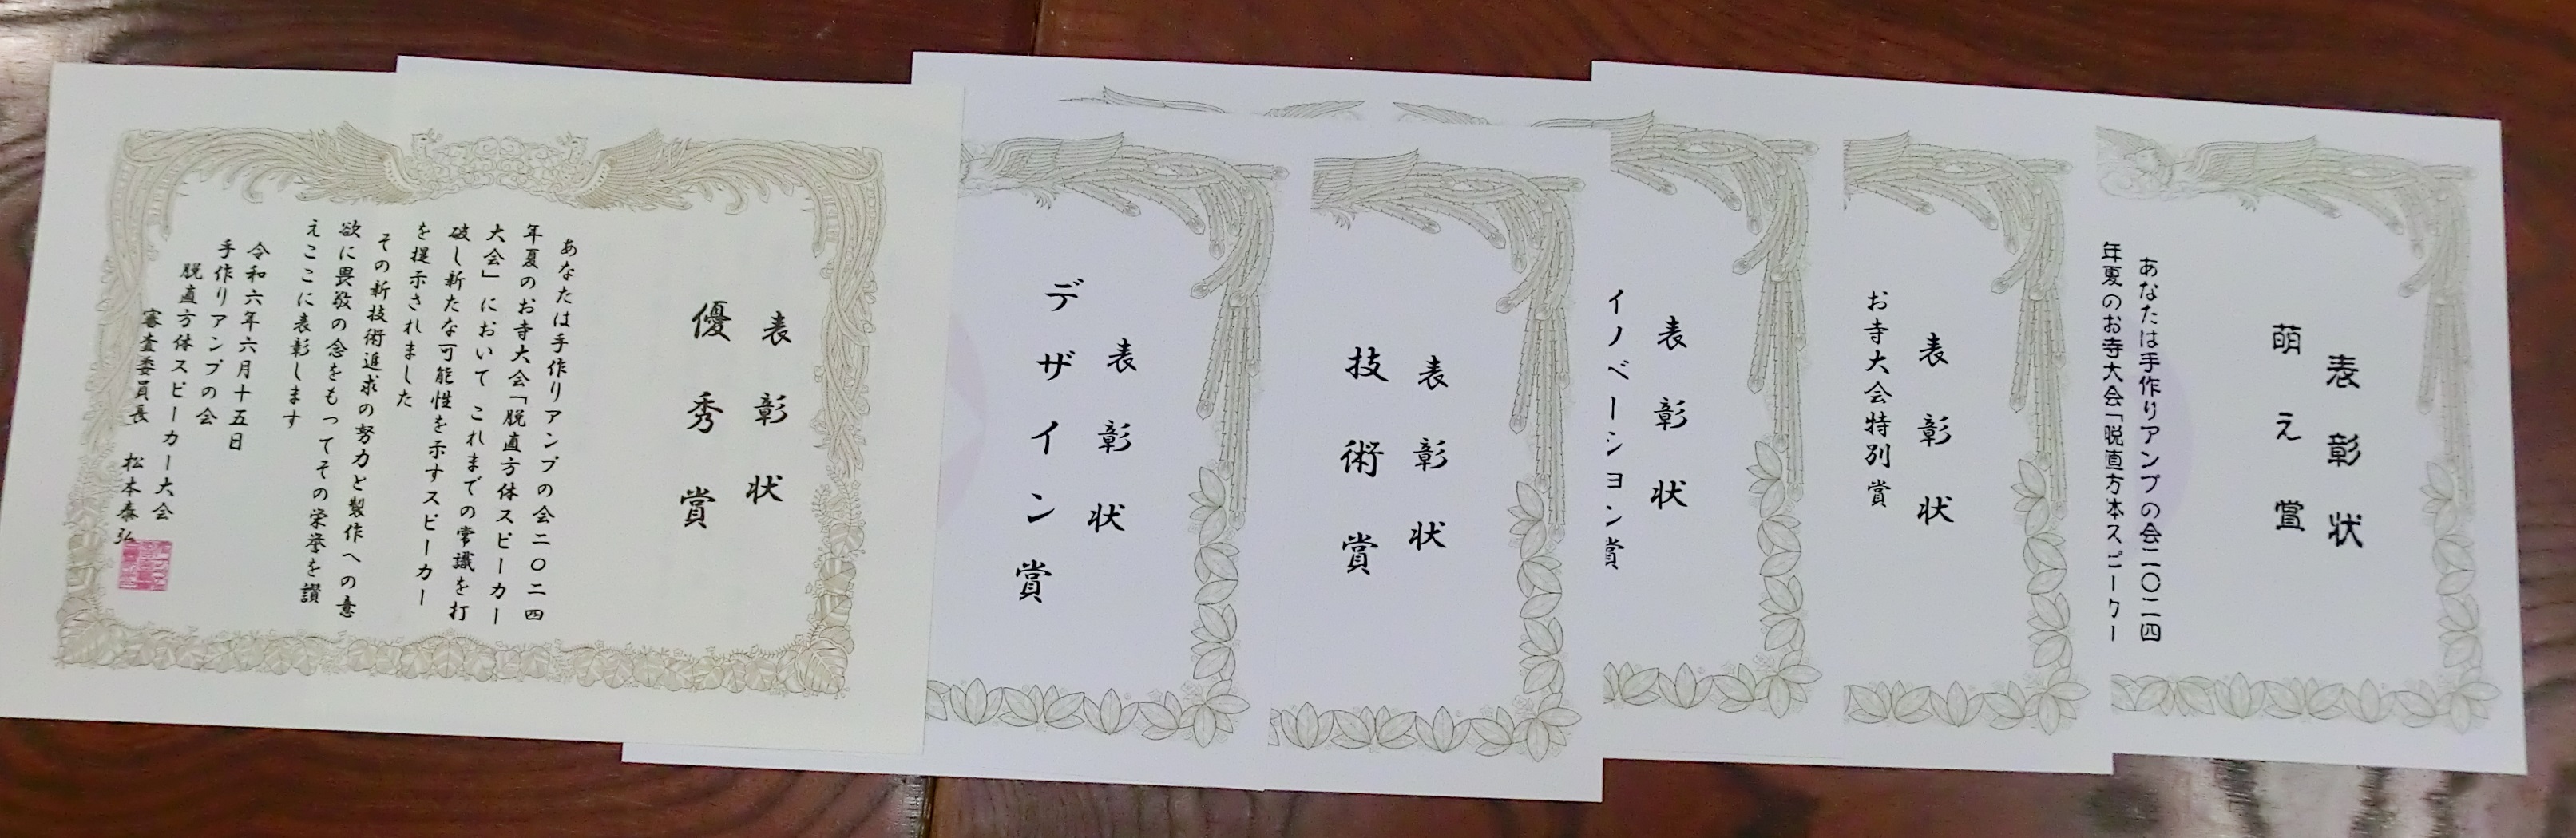 表彰状
優秀賞
あなたは手作りアンプの会二〇二四
年夏のお寺大会「脱直方体スピーカー
大会」において これまでの常識を打
破し新たな可能性を示すスピーカー
を提示されました
その新技術追求の努力と製作への意
欲に畏敬の念をもってその栄誉を讃
えここに表彰します
令和六年六月十五日
手作りアンプの会
脱直方体スピーカー大会
審査委員長 松本泰弘
表彰状
デザイン賞
表彰状
技術賞
表彰状
イノベーション賞
表彰状
お寺大会特別賞
表彰状
萌え賞
あなたは手作りアンプの会二〇二四
年夏のお寺大会「脱直方体スピーカー